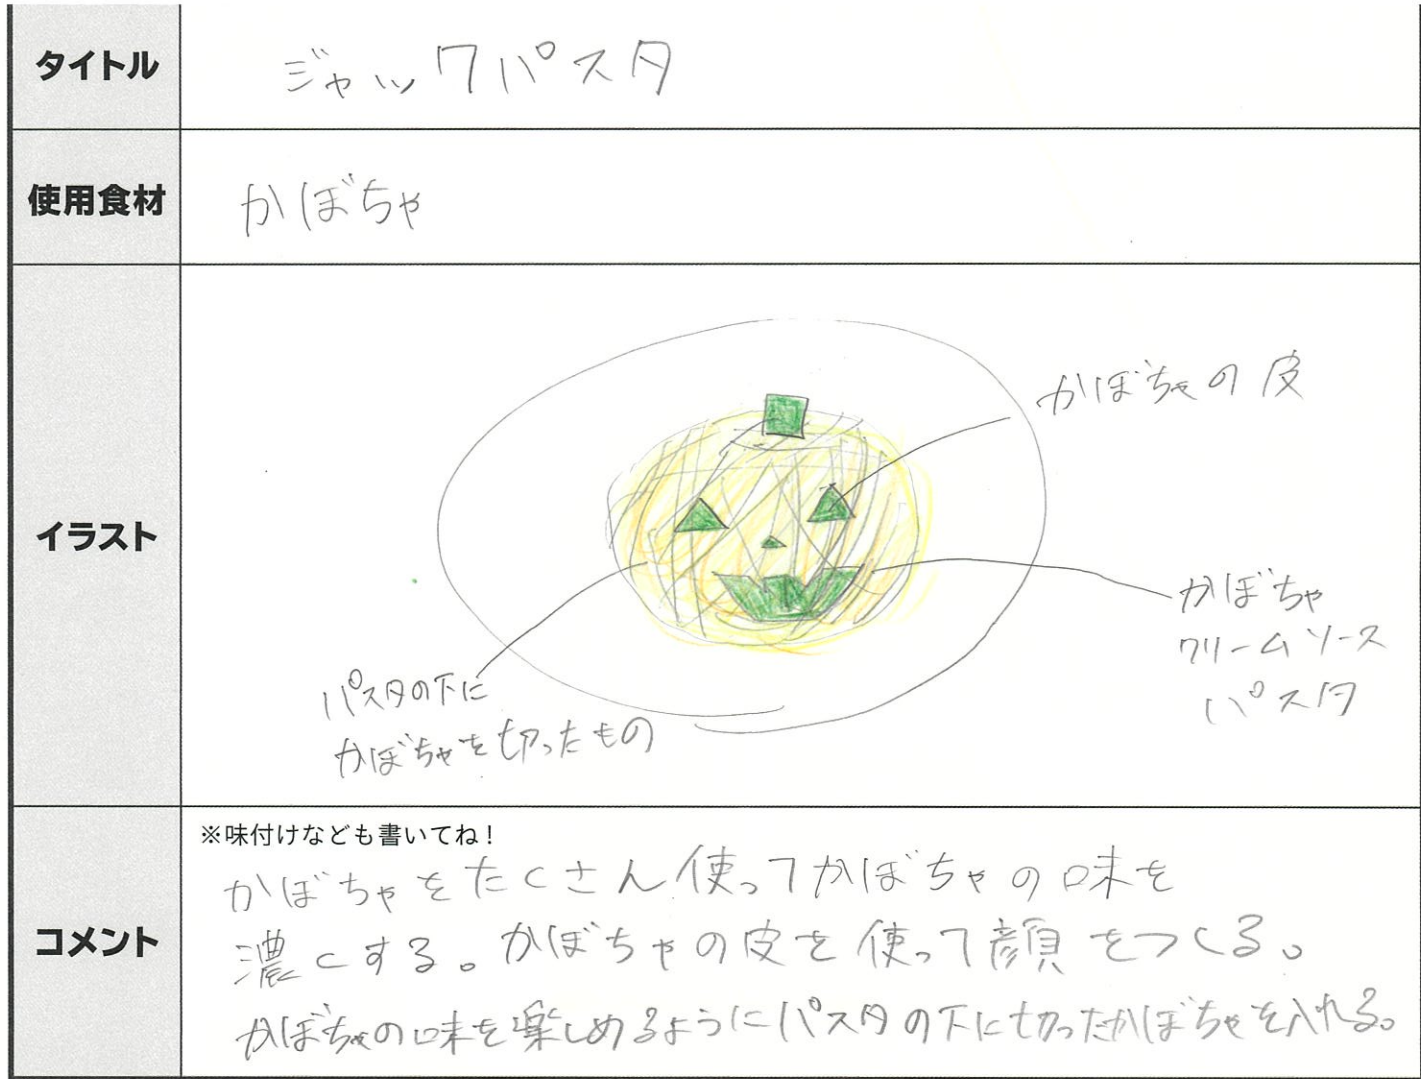 タイトル
ジャックパスタ
使用食材
かぼちゃ
イラスト
かぼちゃの皮
かぼちゃ
クリームソース
パスタ
パスタの下に
かぼちゃを切ったもの
コメント
※味付けなども書いてね！
かぼちゃをたくさん使ってかぼちゃの味を
濃くする。かぼちゃの皮を使って顔をつくる。
かぼちゃの味を楽しめるようにパスタの下に切ったかぼちゃを入れる。